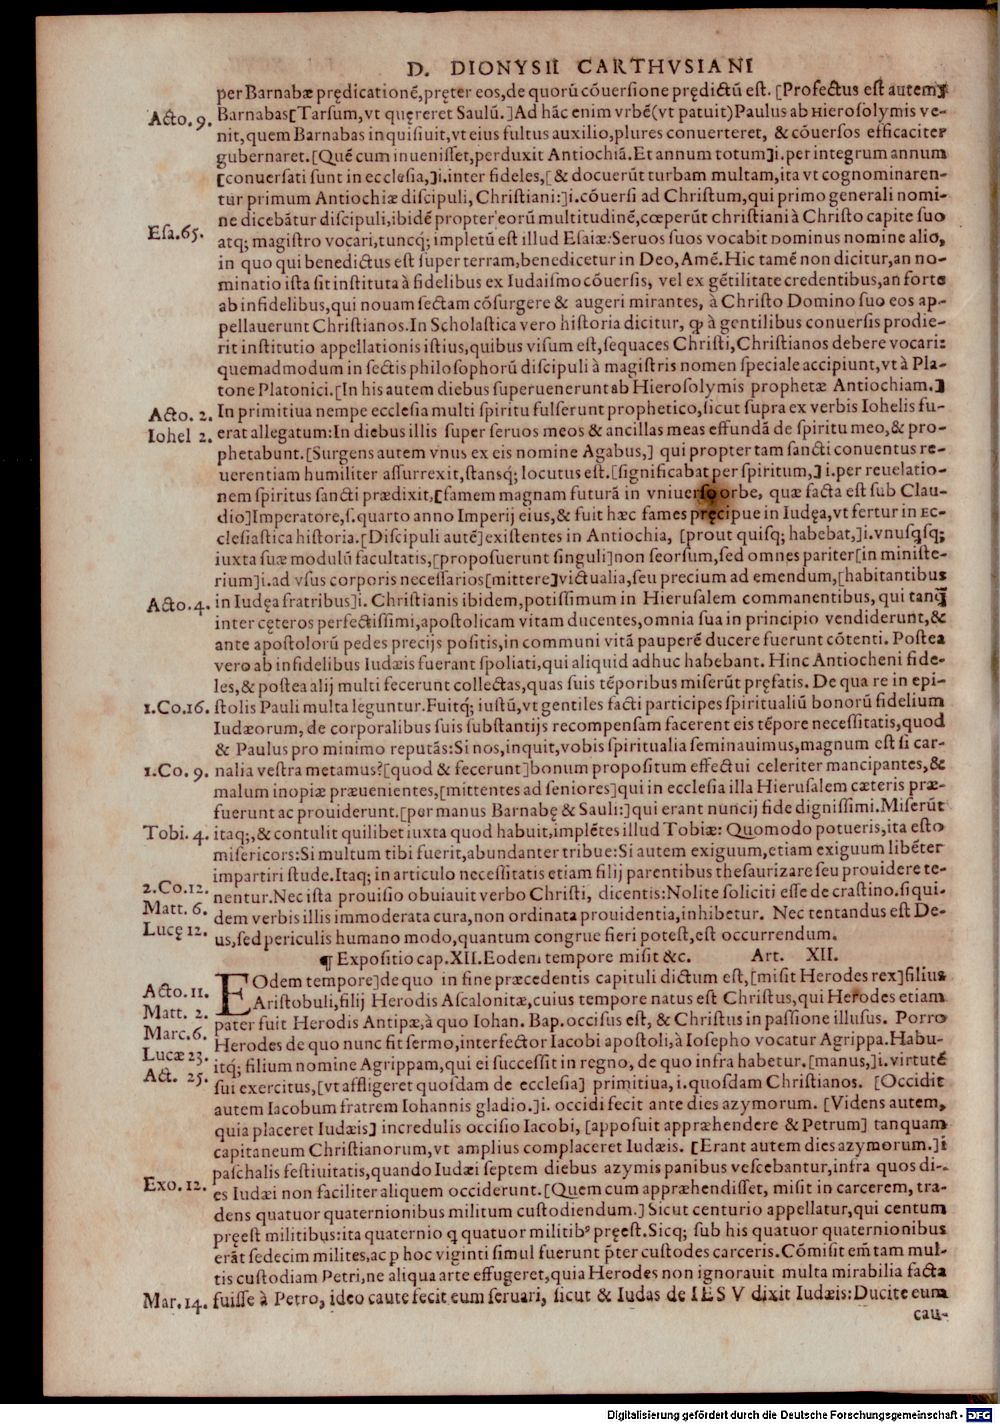 D. DIONYSII CARTHVSIANI
per Barnabæ prędicationē, pręter eos, de quorū cōuersione prędictū est. [Profectus est autem]
Acto. 9. Barnabas[Tarsum, vt quęreret Saulū.]Ad hāc enim vrbē(vt patuit)Paulus ab Hierosolymis ve-
nit, quem Barnabas inquisiuit, vt eius fultus auxilio, plures conuerteret, & cōuersos efficaciter
gubernaret.[Quē cum inuenisset, perduxit Antiochiā. Et annum totum]i. per integrum annum
[conuersati sunt in ecclesia,]i. inter fideles,[& docuerūt turbam multam, ita vt cognominaren-
tur primum Antiochiæ discipuli, Christiani:]i. cōuersi ad Christum, qui primo generali nomi-
ne dicebātur discipuli, ibidē propter eorū multitudinē, cœperūt christiani à Christo capite suo
Esa. 65. atq; magistro vocari, tuncq; impletū est illud Esaiæ: Seruos suos vocabit Dominus nomine alio,
in quo qui benedictus est super terram, benedicetur in Deo, Amē. Hic tamē non dicitur, an no-
minatio ista sit instituta à fidelibus ex Iudaismo cōuersis, vel ex gētilitate credentibus, an forte
ab infidelibus, qui nouam sectam cōsurgere & augeri mirantes, à Christo Domino suo eos ap-
pellauerunt Christianos. In Scholastica vero historia dicitur, ꝙ à gentilibus conuersis prodie-
rit institutio appellationis istius, quibus visum est, sequaces Christi, Christianos debere vocari:
quemadmodum in sectis philosophorū discipuli à magistris nomen speciale accipiunt, vt à Pla-
tone Platonici. [In his autem diebus superuenerunt ab Hierosolymis prophetæ Antiochiam.]
Acto. 2. In primitiua nempe ecclesia multi spiritu fulserunt prophetico, sicut supra ex verbis Iohelis fu-
Iohel 2. erat allegatum: In diebus illis super seruos meos & ancillas meas effundā de spiritu meo, & pro-
phetabunt. [Surgens autem vnus ex eis nomine Agabus,] qui propter tam sancti conuentus re-
uerentiam humiliter assurrexit, stansq; locutus est. [significabat per spiritum,] i. per reuelatio-
nem spiritus sancti prædixit, [famem magnam futurā in vniuerso orbe, quæ facta est sub Clau-
dio]Imperatore, s. quarto anno Imperij eius, & fuit hæc fames pręcipue in Iudęa, vt fertur in Ec-
clesiastica historia.[Discipuli autē]existentes in Antiochia, [prout quisq; habebat,]i. vnusq̃sq;
iuxta suæ modulū facultatis,[proposuerunt singuli]non seorsum, sed omnes pariter[in ministe-
rium]i. ad vsus corporis necessarios[mittere]victualia, seu precium ad emendum,[habitantibus
Acto. 4. in Iudęa fratribus]i. Christianis ibidem, potissimum in Hierusalem commanentibus, qui tanq̃
inter cęteros perfectissimi, apostolicam vitam ducentes, omnia sua in principio vendiderunt, &
ante apostolorū pedes precijs positis, in communi vitā pauperē ducere fuerunt cōtenti. Postea
vero ab infidelibus Iudæis fuerant spoliati, qui aliquid adhuc habebant. Hinc Antiocheni fide-
les, & postea alij multi fecerunt collectas, quas suis tēporibus miserūt pręfatis. De qua re in epi-
1. Co. 16. stolis Pauli multa leguntur. Fuitq; iustū, vt gentiles facti participes spiritualiū bonorū fidelium
Iudæorum, de corporalibus suis substantijs recompensam facerent eis tēpore necessitatis, quod
& Paulus pro minimo reputās: Si nos, inquit, vobis spiritualia seminauimus, magnum est si car-
1. Co. 9. nalia vestra metamus?[quod & fecerunt]bonum propositum effectui celeriter mancipantes, &
malum inopiæ præuenientes,[mittentes ad seniores]qui in ecclesia illa Hierusalem cæteris præ-
fuerunt ac prouiderunt.[per manus Barnabę & Sauli:]qui erant nuncij fide dignissimi. Miserūt
Tobi. 4. itaq;, & contulit quilibet iuxta quod habuit, implētes illud Tobiæ: Quomodo potueris, ita esto
misericors: Si multum tibi fuerit, abundanter tribue: Si autem exiguum, etiam exiguum libēter
impartiri stude. Itaq; in articulo necessitatis etiam filij parentibus thesaurizare seu prouidere te-
2. Co. 12. nentur. Nec ista prouisio obuiauit verbo Christi, dicentis: Nolite soliciti esse de crastino. siqui-
Matt. 6. dem verbis illis immoderata cura, non ordinata prouidentia, inhibetur. Nec tentandus est De-
Lucę 12. us, sed periculis humano modo, quantum congrue fieri potest, est occurrendum.
¶ Expositio cap. XII. Eodem tempore misit &c. Art. XII.
EOdem tempore]de quo in fine præcedentis capituli dictum est, [misit Herodes rex]filius
Acto. 11. Aristobuli, filij Herodis Ascalonitæ, cuius tempore natus est Christus, qui Herodes etiam
Matt. 2. pater fuit Herodis Antipæ, à quo Iohan. Bap. occisus est, & Christus in passione illusus. Porro
Marc. 6. Herodes de quo nunc fit sermo, interfector Iacobi apostoli, à Iosepho vocatur Agrippa. Habu-
Lucæ 23. itq; filium nomine Agrippam, qui ei successit in regno, de quo infra habetur. [manus,]i. virtutē
Act. 25. sui exercitus, [vt affligeret quosdam de ecclesia] primitiua, i. quosdam Christianos. [Occidit
autem Iacobum fratrem Iohannis gladio.]i. occidi fecit ante dies azymorum. [Videns autem,
quia placeret Iudæis] incredulis occisio Iacobi, [apposuit appræhendere & Petrum] tanquam
capitaneum Christianorum, vt amplius complaceret Iudæis. [Erant autem dies azymorum.]i
paschalis festiuitatis, quando Iudæi septem diebus azymis panibus vescebantur, infra quos di-
Exo. 12. es Iudæi non faciliter aliquem occiderunt. [Quem cum appræhendisset, misit in carcerem, tra-
dens quatuor quaternionibus militum custodiendum.] Sicut centurio appellatur, qui centum
pręest militibus: ita quaternio q̃ quatuor militibꝰ pręest. Sicq; sub his quatuor quaternionibus
erāt sedecim milites, ac ꝑ hoc viginti simul fuerunt p̃ter custodes carceris. Cōmisit em̃ tam mul-
tis custodiam Petri, ne aliqua arte effugeret, quia Herodes non ignorauit multa mirabilia facta
Mar. 14. fuisse à Petro, ideo caute fecit eum seruari, sicut & Iudas de IESV dixit Iudæis: Ducite eum
cau-
Digitalisierung gefördert durch die Deutsche Forschungsgemeinschaft - DFG